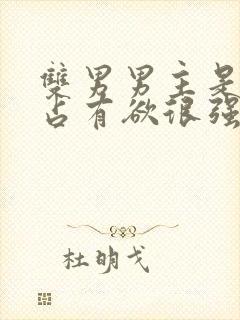 雙男男主是
占有欲很强
杜明戈